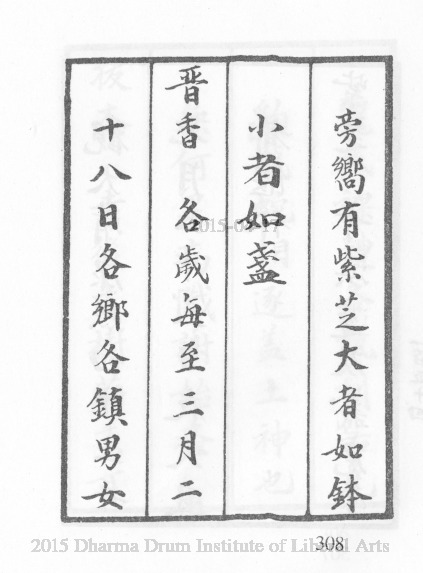 旁嚮有紫芝大者如鉢
小者如盞
晋香 各歲每至三月二
十八日各鄉各鎮男女
308
2015 Dharma Drum Institute of Liberal Arts